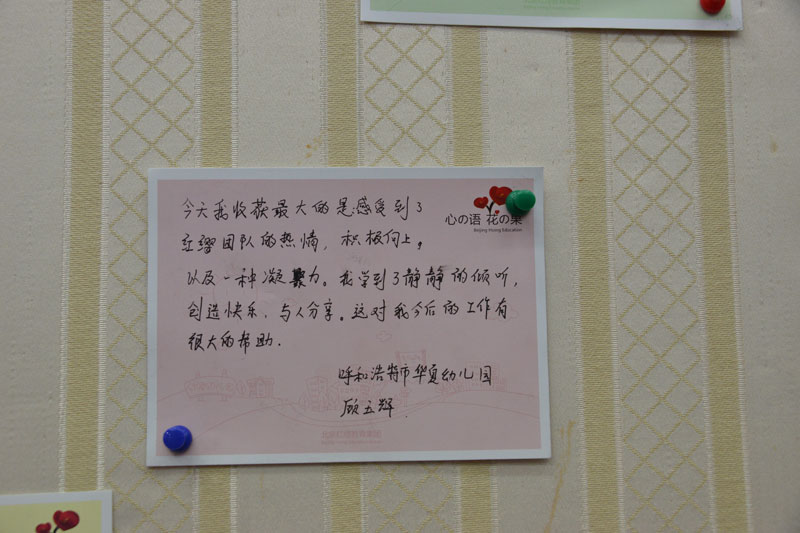 心の语 花の果
Beijing Hong Education
今天我收获最大的是感受到了
红缨团队的热情，积极向上。
以及一种凝聚力。我学到了静静的倾听，
创造快乐，与人分享。这对我今后的工作有
很大的帮助.
呼和浩特市华夏幼儿园
顾玉辉
北京红缨教育集团